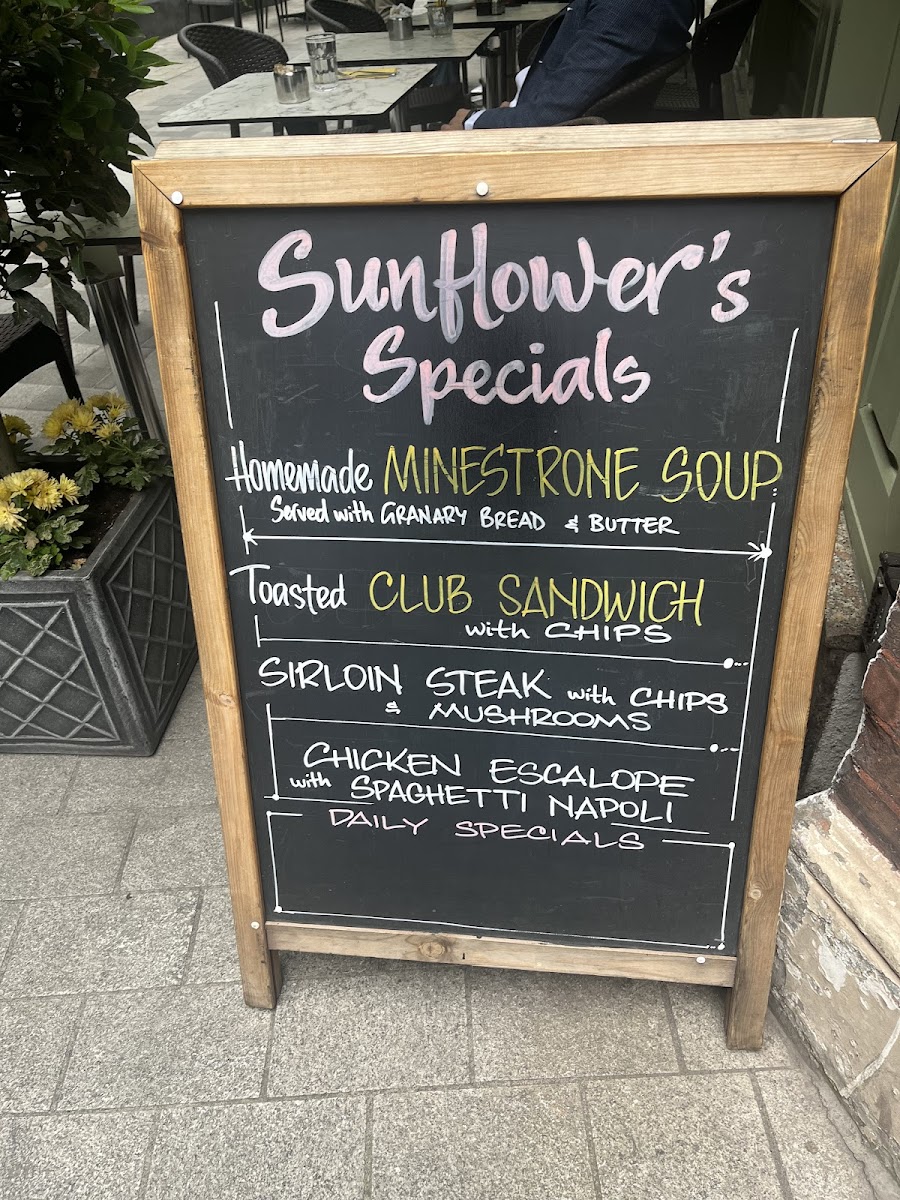 Sunflower's
Specials
Homemade MINESTRONE SOUP
Served with GRANARY BREAD & BUTTER
Toasted CLUB SANDWICH
with CHIPS
SIRLOIN STEAK with CHIPS
& MUSHROOMS
CHICKEN ESCALOPE
with SPAGHETTI NAPOLI
DAILY SPECIALS